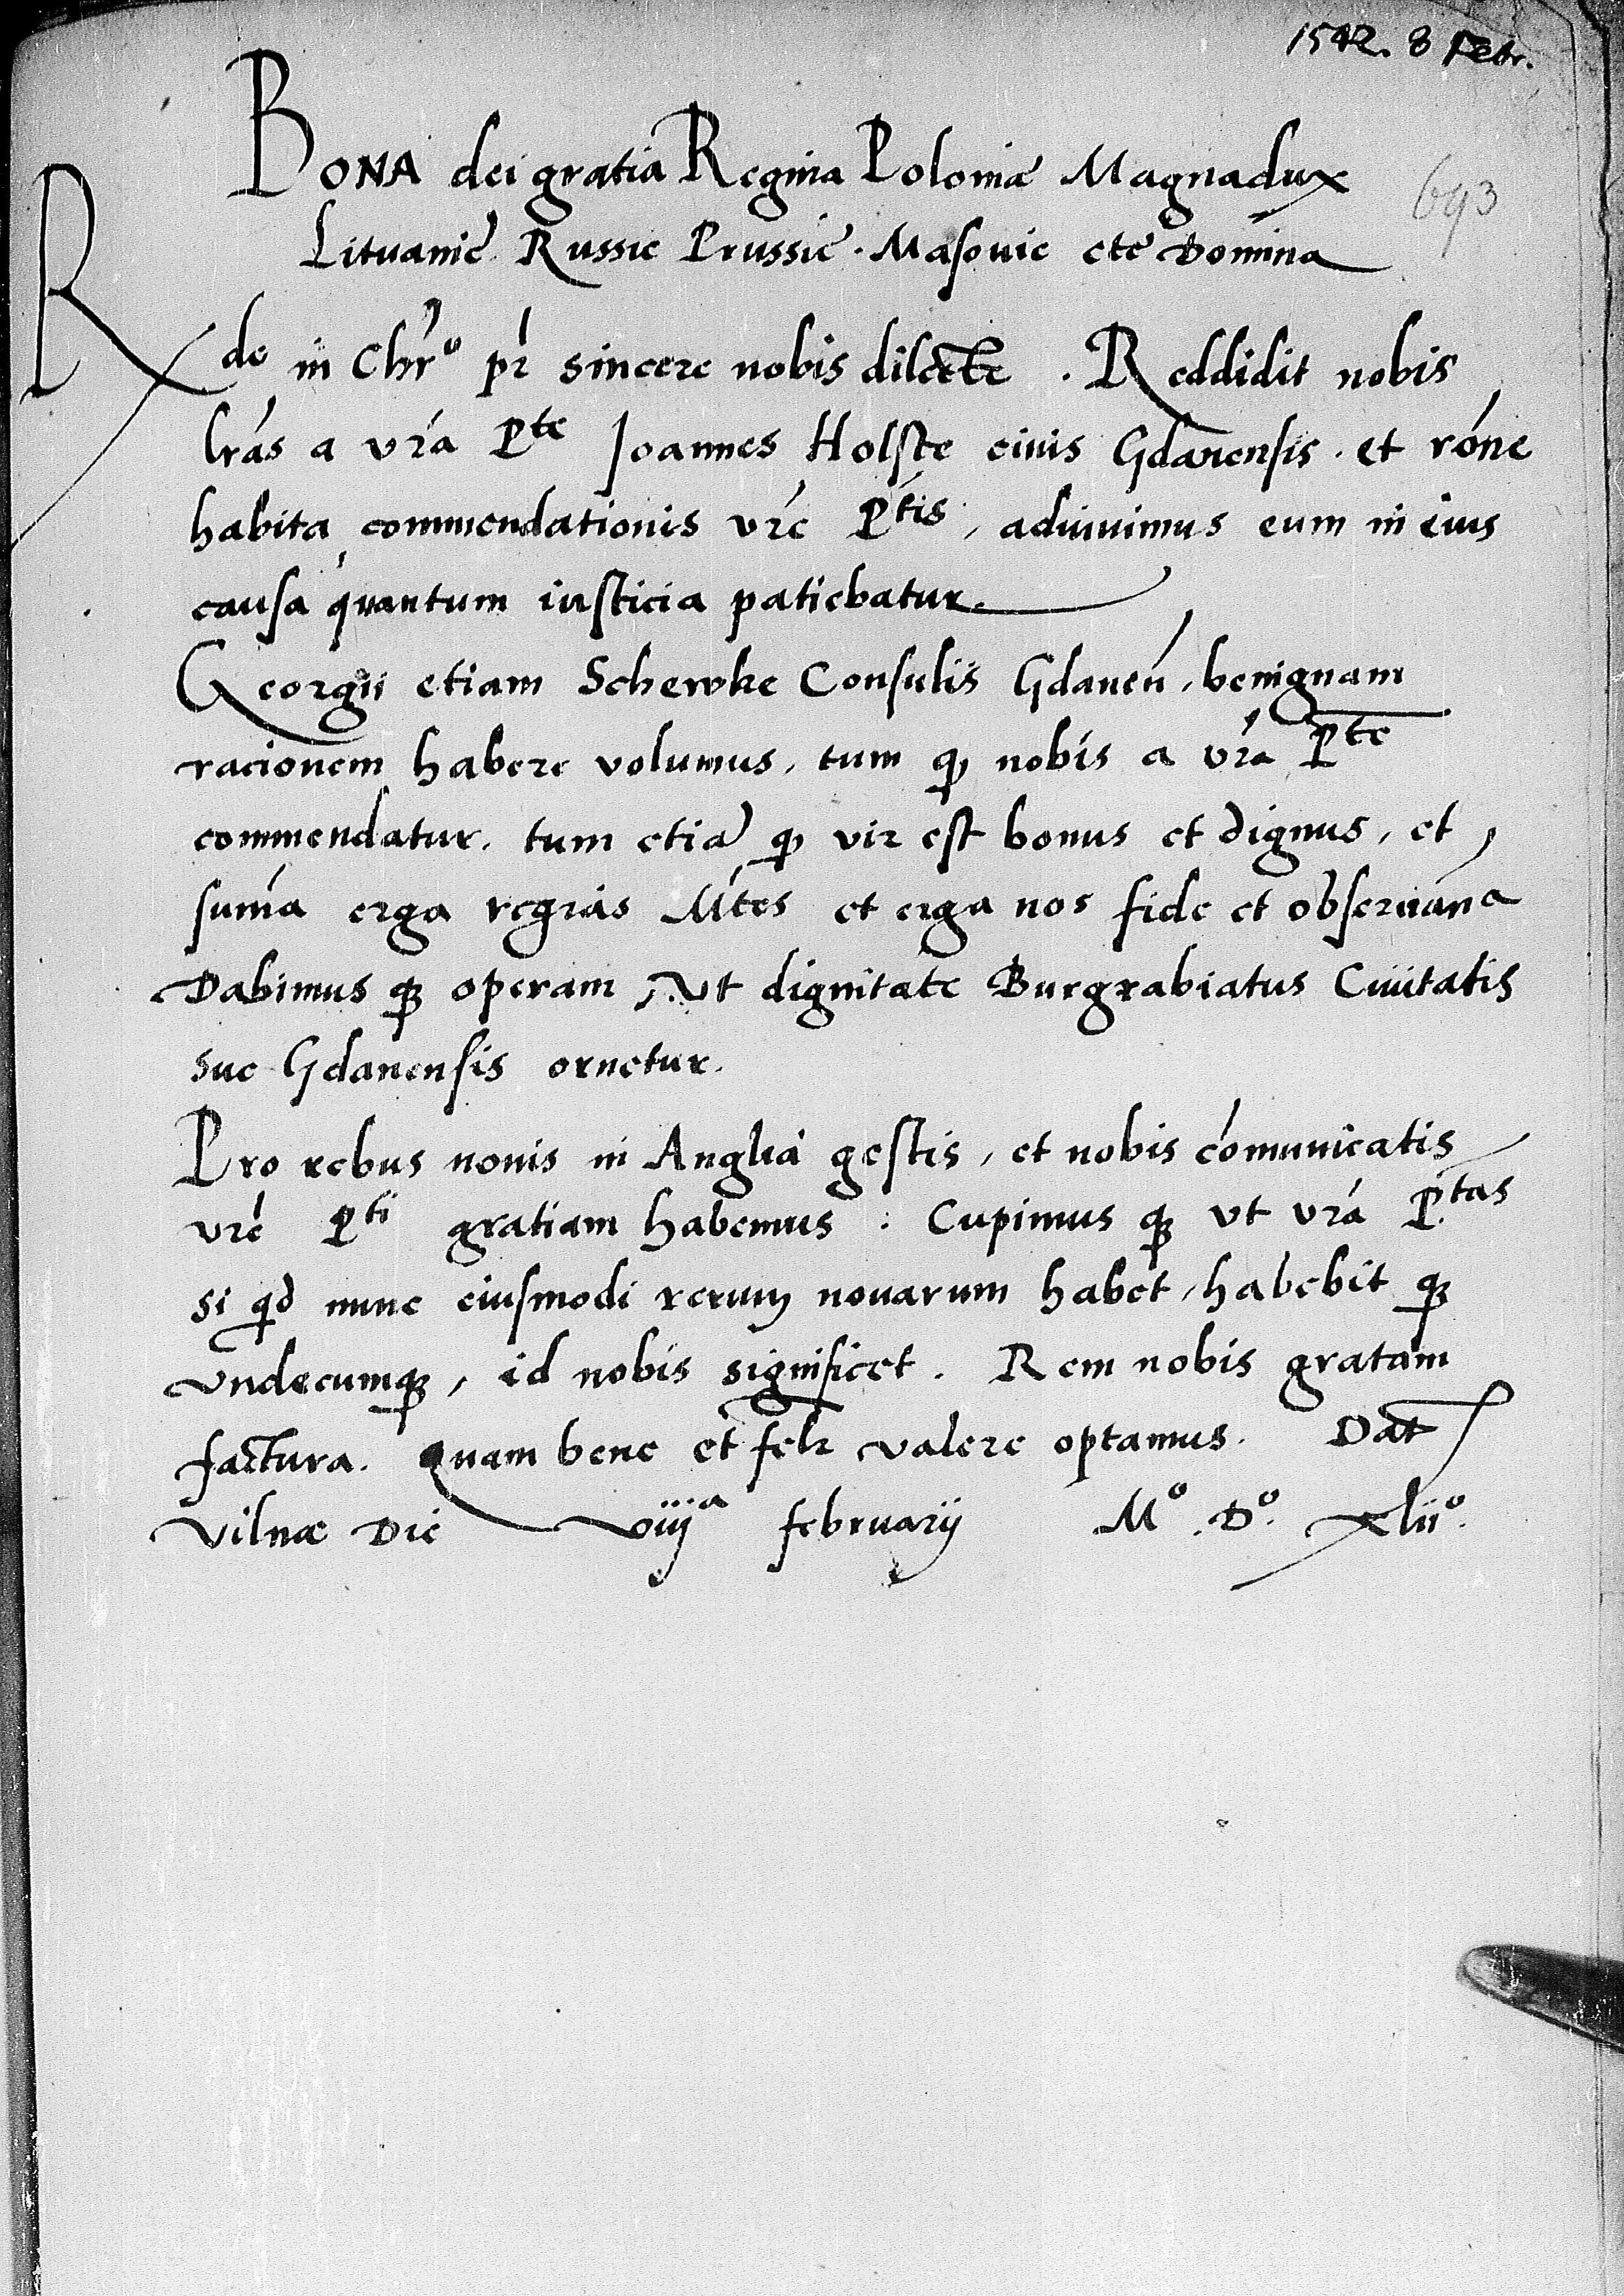 1542. 8 Febr.
BONA dei gratia Regina Poloniæ Magnadux
693
Lituanie Russie Prussie. Masovie etc Domina
Rde in Chr̃o pr̃ sincere nobis dilecte. Reddidit nobis
lr̃as a vr̃a Pte Joannes Holste civis Gdanensis. et rõne
habita commendationis vr̃e Ptis, adiuvimus eum in eius
causa quantum iusticia patiebatur.
Georgii etiam Schewke Consulis Gdanen̄, benignam
racionem habere volumus, tum qꝫ nobis a vr̃a Pte
commendatur. tum etiā qꝫ vir est bonus et dignus, et
sum̄a erga regias Mtes et erga nos fide et observanc̃
Dabimus qꝫ operam, Ut dignitate Burgrabiatus Civitatis
sue Gdanensis ornetur.
Pro rebus novis in Anglia gestis, et nobis cōmunicatis
vr̃e Pti gratiam habemus. Cupimus qꝫ ut vr̃a P.tas
si qd nunc eiusmodi rerum novarum habet, habebit qꝫ
undecumqꝫ, id nobis significet. Rem nobis gratam
factura. Quam bene et felr̃ valere optamus. Dat̄
Vilnæ Die viija februarij Mo. Do. xlijo.